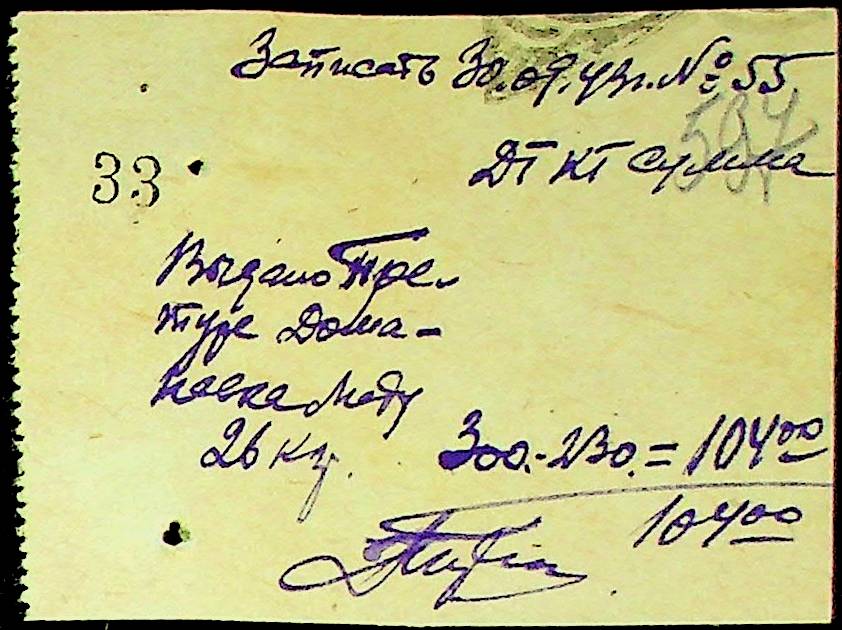 Записать 30.09.43г. № 55
534
ДТ КТ сумма
33
Выдано Пре-
туре Дома-
невка меду
26 кг. 300.-230.=104 00
104 00